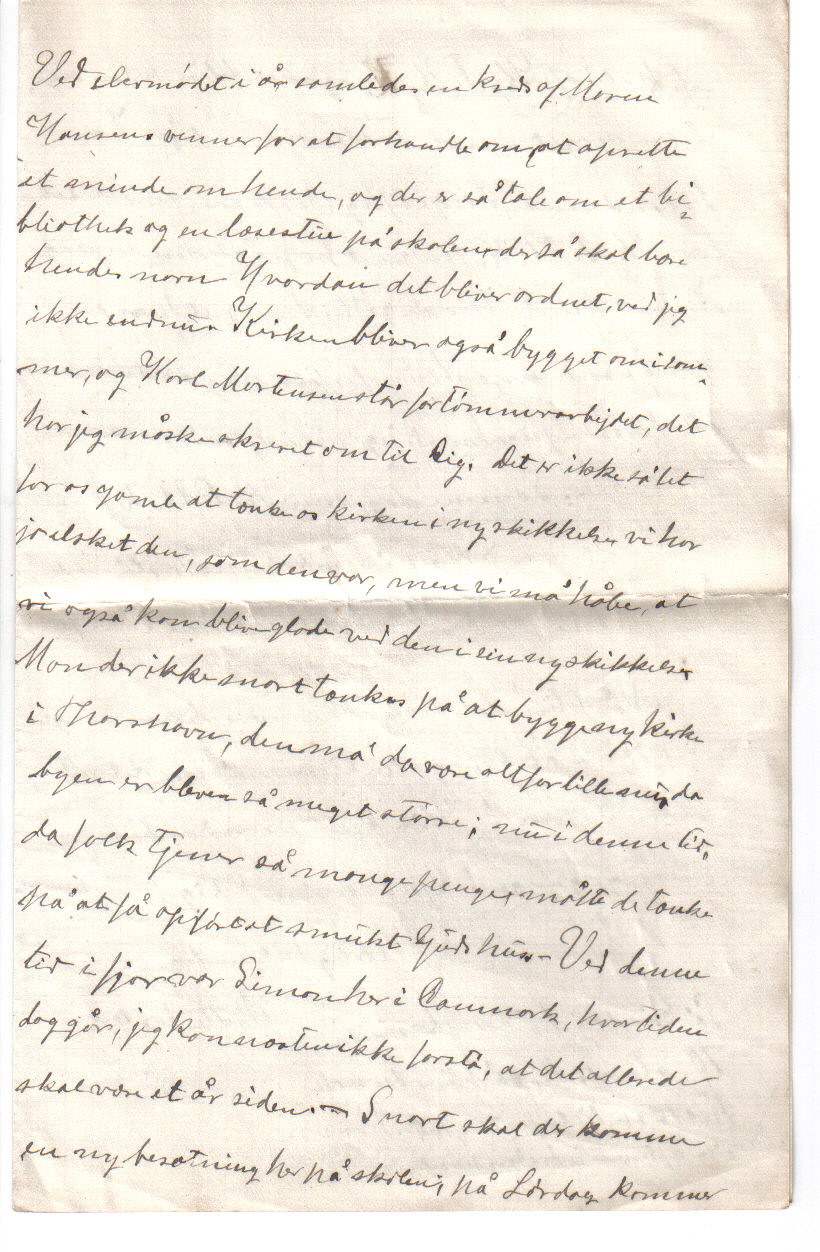 Ved elevmødet i år samledes en kreds af Maren
Hansens venner for at forhandle om, at oprette
et minde om hende, og der er så tale om et bi=
bliothek og en læsestue på skolen, der så skal bære
hendes navn Hvordan det bliver ordnet, ved jeg
ikke endnu. Kirken bliver også bygget om i som=
mer, og Karl Mortensen står for tømmerarbejdet, det
har jeg måske skrevet om til Dig. Det er ikke så let
for os gamle at tænke os kirken i ny skikkelse, vi har
jo elsket den, som den var, men vi må håbe, at
vi også kan blive glade ved den i sin ny skikkelse.
Mon der ikke snart tænkes på at bygge ny kirke
i Thorshavn, den må da være alt for lille nu, da
byen er bleven så meget større; nu i denne tid,
da folk tjener så mange penge, måtte de tænke
på at få opført et smukt Gudshus. – Ved denne
tid i fjor var Simon her i Danmark, hvor tiden
dog går, jeg kan næsten ikke forstå, at det allerede
skal være et år siden. – Snart skal der komme
en ny besætning her på skolen; på Lørdag kommer